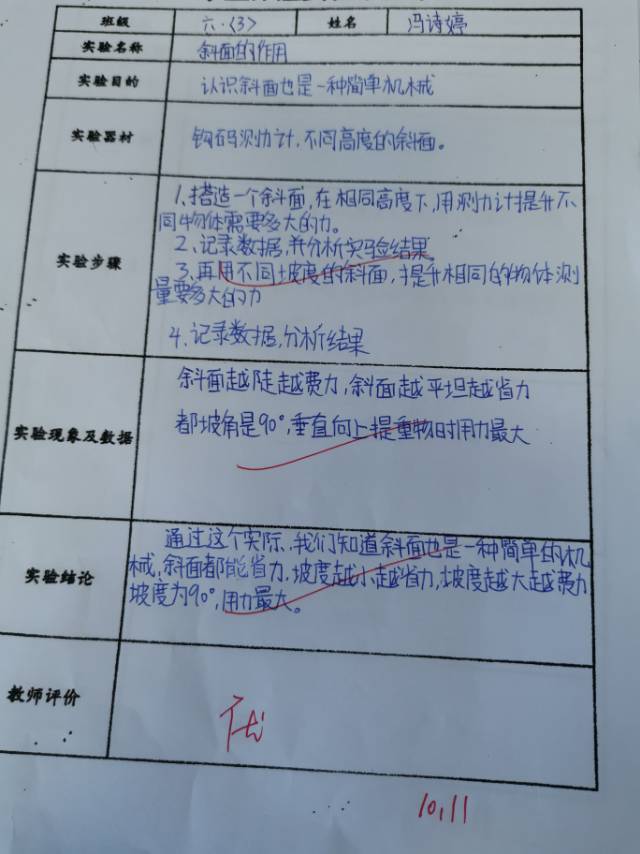 班级 六.〈3〉 姓名 冯诗婷
实验名称 斜面的作用
实验目的 认识斜面也是一种简单机械
实验器材 钩码测力计,不同高度的斜面。
实验步骤
1、搭造一个斜面,在相同高度下,用测力计提升不
同物体需要多大的力。
2、记录数据,并分析实验结果。
3、再用不同坡度的斜面,提升相同的物体测
量要多大的力
4、记录数据,分析结果
实验现象及数据
斜面越陡越费力,斜面越平坦越省力
都坡角是90°,垂直向上提重物时用力最大
实验结论
通过这个实际,我们知道斜面也是一种简单的机
械,斜面都能省力,坡度越小越省力,坡度越大越费力
坡度为90°,用力最大。
教师评价
优
10,11